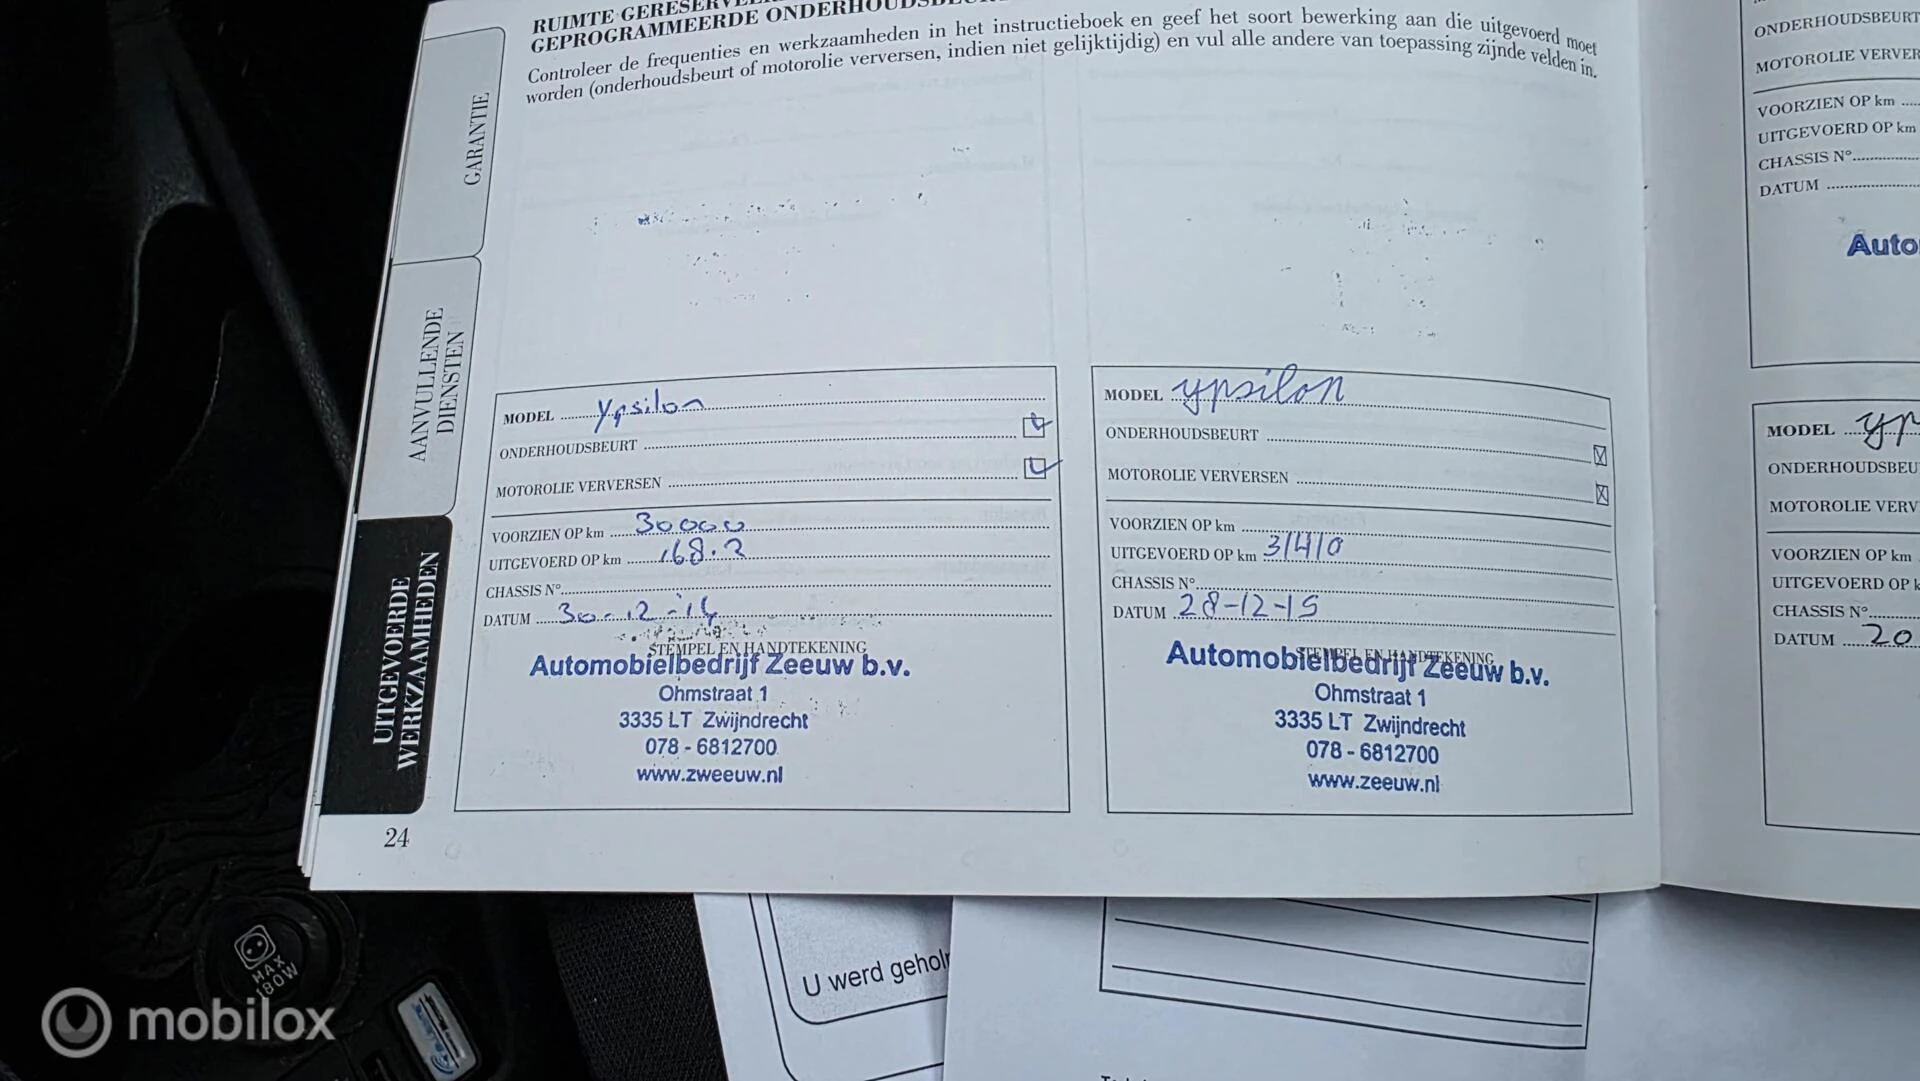 RUIMTE GERESERVEE
GEPROGRAMMEERDE ONDERHOUDSBEU
Controleer de frequenties en werkzaamheden in het instructieboek en geef het soort bewerking aan die uitgevoerd moet
worden (onderhoudsbeurt of motorolie verversen, indien niet gelijktijdig) en vul alle andere van toepassing zijnde velden in.
GARANTIE
AANVULLENDE
DIENSTEN
UITGEVOERDE
WERKZAAMHEDEN
MODEL Ypsilon
ONDERHOUDSBEURT
MOTOROLIE VERVERSEN
VOORZIEN OP km 30000
UITGEVOERD OP km
CHASSIS N°
DATUM 30-12-14
STEMPEL EN HANDTEKENING
Automobielbedrijf Zeeuw b.v.
Ohmstraat 1
3335 LT Zwijndrecht
078 - 6812700
www.zweeuw.nl
24
MODEL ypsilon
ONDERHOUDSBEURT
MOTOROLIE VERVERSEN
VOORZIEN OP km
UITGEVOERD OP km 31410
CHASSIS N°
DATUM 28-12-15
STEMPEL EN HANDTEKENING
Automobielbedrijf Zeeuw b.v.
Ohmstraat 1
3335 LT Zwijndrecht
078 - 6812700
www.zeeuw.nl
ONDERHOUDSBEURT
MOTOROLIE VERVER
VOORZIEN OP km
UITGEVOERD OP km
CHASSIS N°
DATUM
Auto
MODEL yp
ONDERHOUDSBEU
MOTOROLIE VERV
VOORZIEN OP km
UITGEVOERD OP k
CHASSIS N°
DATUM 20
U werd geholp
MAX
180W
mobilox